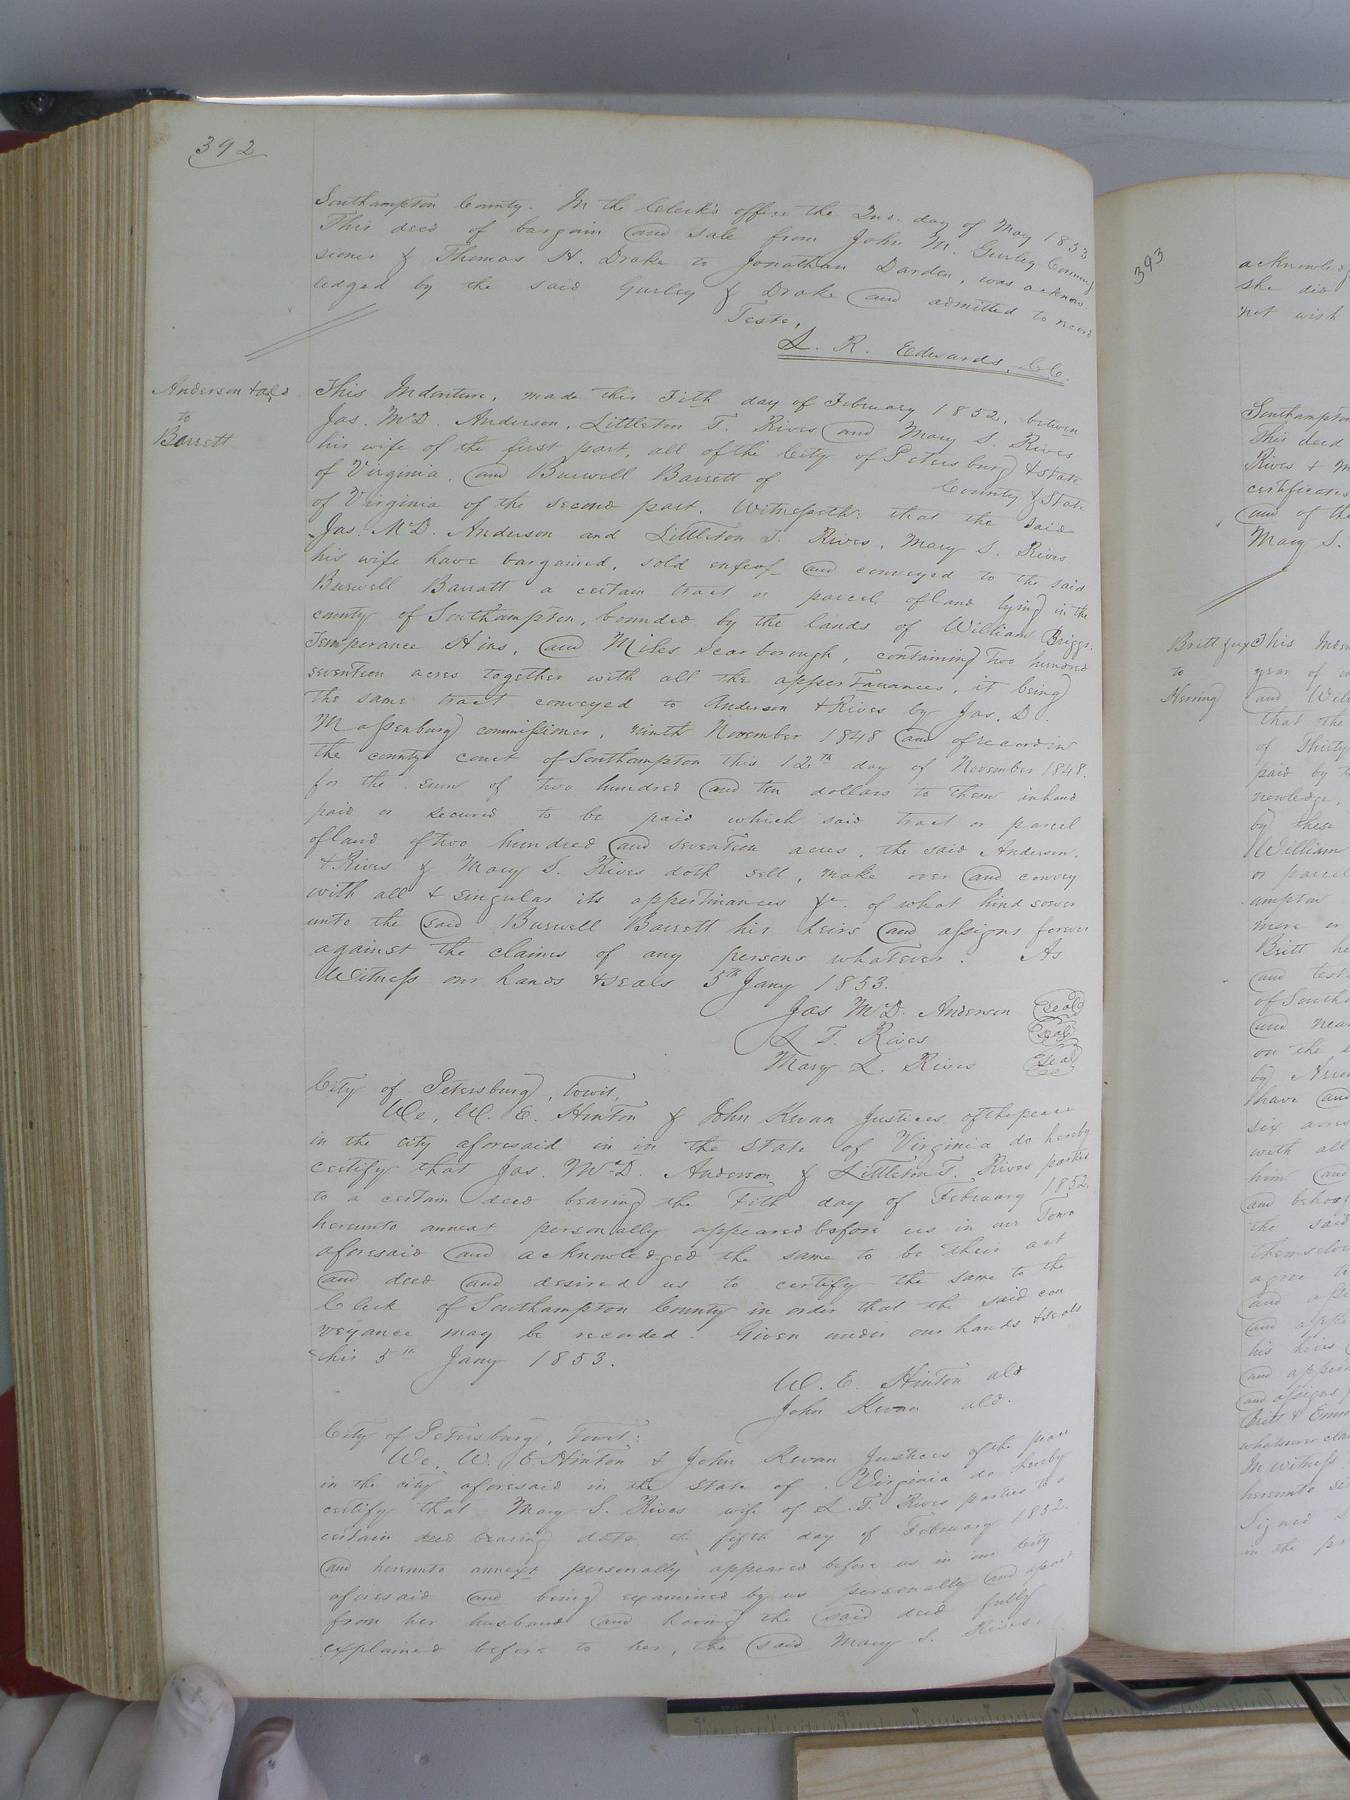 392
Southampton County. In the Clerk's office the 2nd. day of May 1853
This deed of bargain and sale from John M. Gurley Commis
sioner & Thomas H. Drake to Jonathan Darden, was acknow-
ledged by the said Gurley & Drake and admitted to record
Teste,
L. R. Edwards, C.C.
Anderson & als
to
Barrett
This Indenture, made this Fith day of February 1852, between
Jas. McD. Anderson, Littleton T. Rives and Mary S. Rives
his wife of the first part, all of the City of Petersburg & State
of Virginia, and Burwell Barrett of County & State
of Virginia of the second part. Witnesseth: that the said
Jas. McD. Anderson and Littleton T. Rives, Mary S. Rives
his wife have bargained, sold enfeof- and conveyed to the said
Burwell Barratt a certain tract or parcel of land lying in the
county of Southampton, bounded by the lands of William Briggs.
Temperance Hins, and Miles Scarborough, containing Two hundred
seventeen acres together with all the appertanances, it being
the same tract conveyed to Anderson & Rives by Jas. D.
Massenburg commissioner, ninth November 1848 and of record in
the county court of Southampton this 12th day of November 1848.
for the sum of two hundred and ten dollars to them in hand
paid or secured to be paid which said tract or parcel
of land of two hundred and seventeen acres, the said Anderson,
& Rives & Mary S. Rives doth sell, make over and convey
with all & singular its appertinances &c. of what kind sover
unto the said Burwell Barrett his heirs and assigns forever
against the claims of any persons whatever. As
Witness our hands & seals 5th Jany 1853.
Jas McD. Anderson seal
L T. Rives seal
Mary S. Rives seal
City of Petersburg, towit,
We, W. E. Hinton & John Kevan Justices of the peace
in the city aforesaid in in the State of Virginia do hereby
certify that Jas. McD. Anderson & Littleton T. Rives parties
to a certain deed bearing the Fith day of February 1852.
hereunto annext personally appeared before us in our Town
aforesaid and acknowledged the same to be their act
and deed and desired us to certify the same to the
Clerk of Southampton County in order that the said con
veyance may be recorded. Given under our hands & seals
this 5th Jany 1853.
W. E. Hinton ald
John Kevan ald.
City of Petersburg, Towit:
We, W. E Hinton & John Kevan Justices of the peace
in the city aforesaid in the State of Virginia do hereby
certify that Mary S. Rives wife of L. T. Rives parties to a
certain deed bearing date the fifth day of February 1852.
and hereunto annext personally appeared before us in our City
aforesaid and being examined by us personally and apart
from her husband and having the said deed fully
explained before to her, the said Mary S. Rives
393
acknowledg
she did
not wish
Southampton
This deed
Rives & M
certificates
and of the
Mary S.
Britt & ux
to
Nerring
This Inden
year of
and Will
that the
of Thirty
paid by t
nowledge,
by these
William
or parcel
ampton
more or
Britt he
and test
of South
and near
on the
by
have and
six acres
with all
him and
and behoof
the said
themselves
agree to
and assi
and appe
his heirs
and appur
and assigns
Britt & Emm
whatsoever cla
In witness
hereunto se
Signed
in the pr